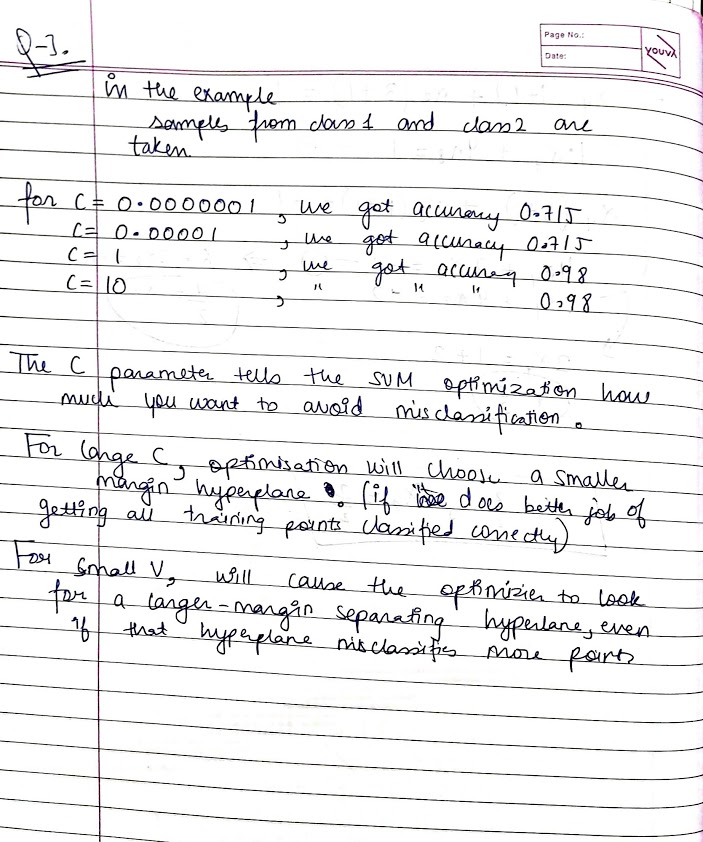 Page No.:
Date:
YOUVA
Q-3.
in the example
samples from class 1 and class 2 are
taken.
for C = 0.0000001 , we got accuracy 0.715
C = 0.00001 , we got accuracy 0.715
C = 1 , we got accuracy 0.98
C = 10 , " " " 0.98
The C parameter tells the SVM optimization how
much you want to avoid misclassification.
For large C, optimisation will choose a smaller
margin hyperplane. (if does better job of
getting all training points classified correctly)
For small V, will cause the optimizier to look
for a larger-margin separating hyperlane, even
if that hyperplane misclassifies more points